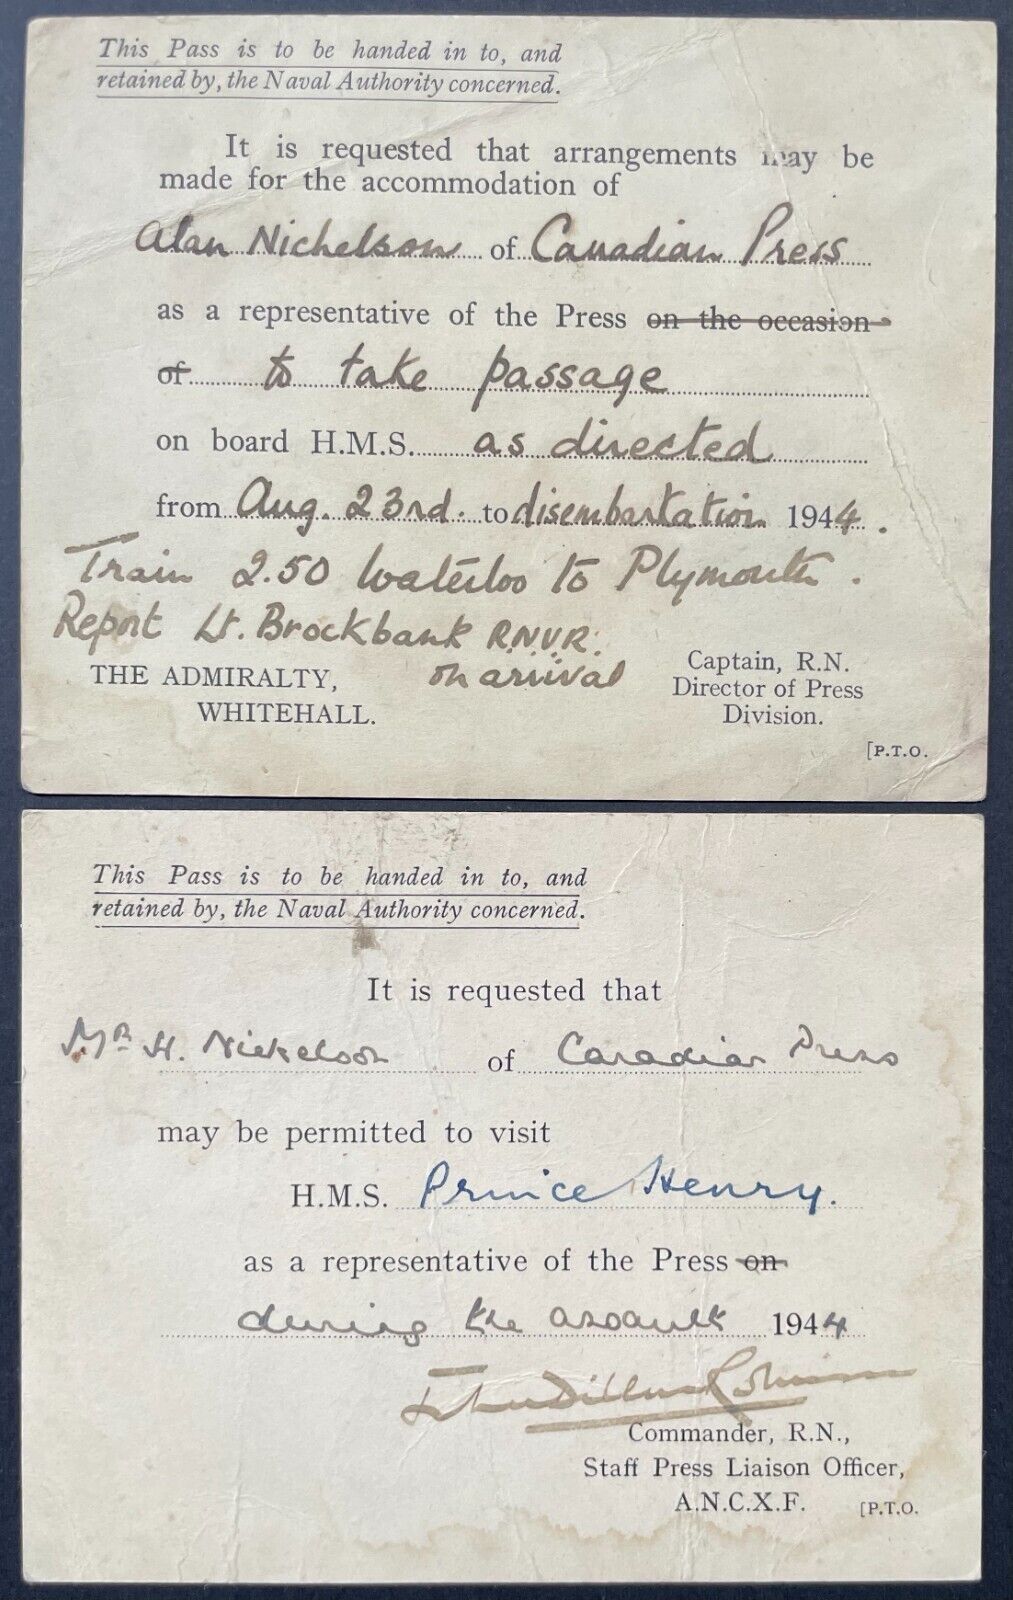 This Pass is to be handed in to, and
retained by, the Naval Authority concerned.
It is requested that arrangements may be
made for the accommodation of
Alan Nichelson of Canadian Press
as a representative of the Press on the occasion
of to take passage
on board H.M.S. as directed
from Aug. 23rd. to disembarkation 1944.
Train 2.50 Waterloo to Plymouth.
Report Lt. Brockbank R.N.V.R.
on arrival
THE ADMIRALTY,
WHITEHALL.
Captain, R.N.
Director of Press
Division.
[P.T.O.
This Pass is to be handed in to, and
retained by, the Naval Authority concerned.
It is requested that
Mr H. Nickelson of Canadian Press
may be permitted to visit
H.M.S. Prince Henry.
as a representative of the Press on
during the assault 1944
Commander, R.N.,
Staff Press Liaison Officer,
A.N.C.X.F.
[P.T.O.